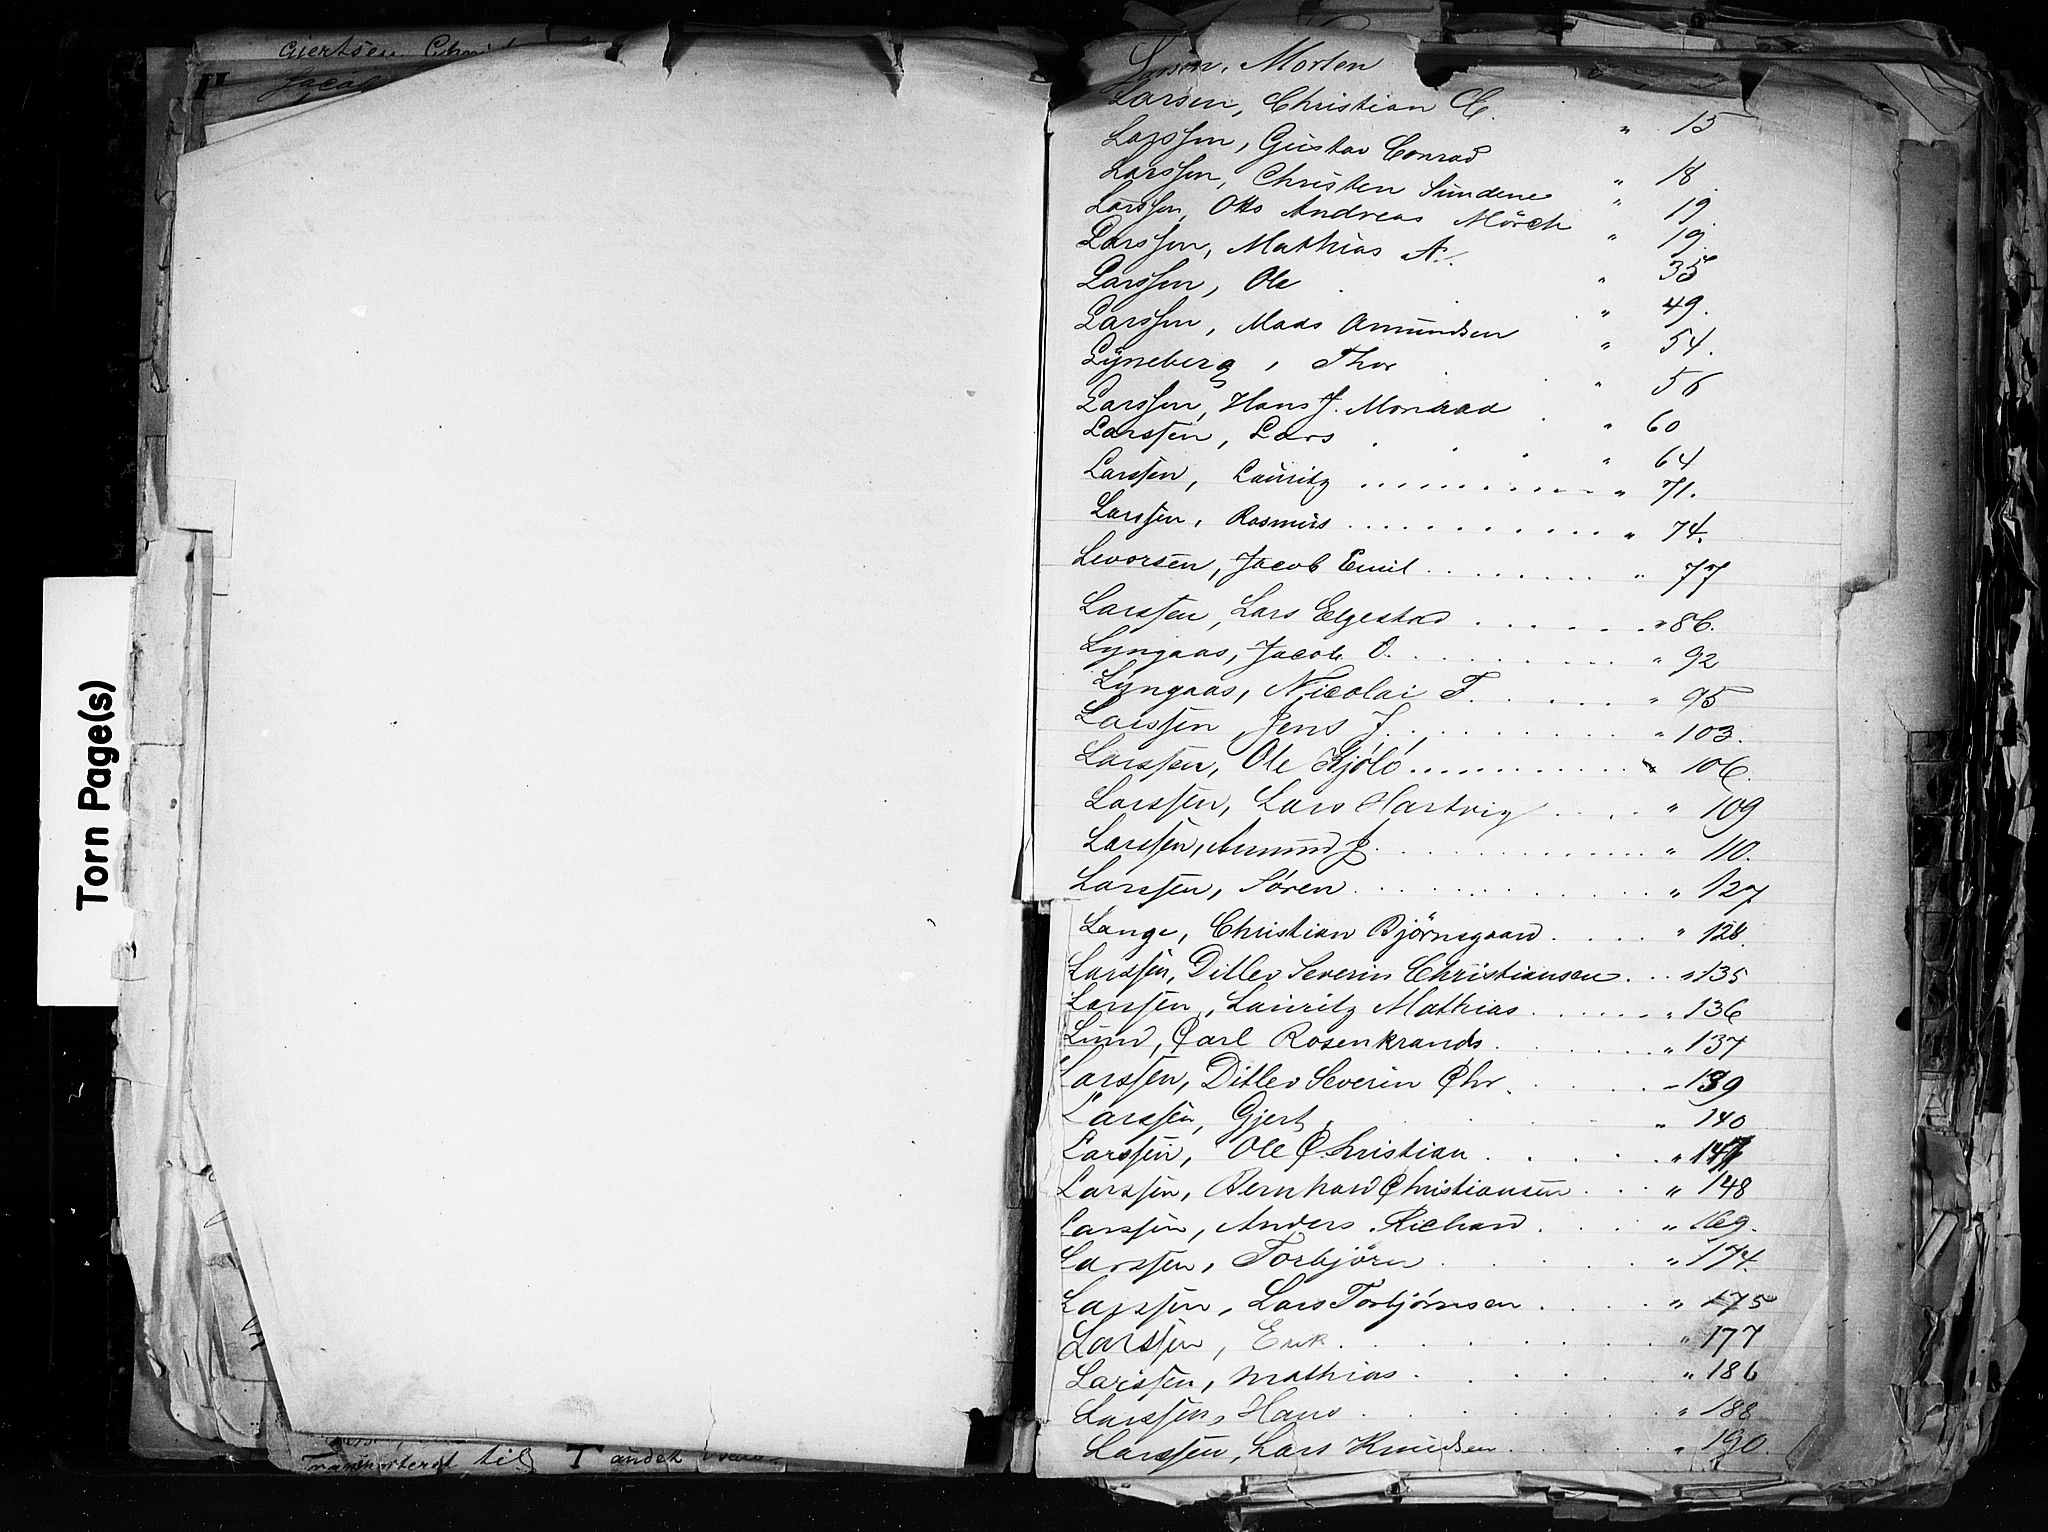 Gjertsen
Jacob
Torn Page(s)
Transporteret til T andet
Larsen, Morten
Larsen, Christian " 15
Larssen, Gustav Conrad
Larssen, Christen Sundene " 18
Larssen, Otto Andreas Mörch " 19.
Larssen, Mathias A. " 19.
Larssen, Ole " 35
Larssen, Mads Amundsen " 49.
Lyneberg, Thor " 54.
Larssen, Hans J. Monrad " 56
Larssen, Lars " 60
" 64
Larssen, Lauritz " 71.
Larssen, Rasmus " 74.
Levorsen, Jacob Emil " 77
Larssen, Lars Elgestad " 86.
Lyngaas, Jacob O. " 92
Lyngaas, Nicolai T. " 95
Larssen, Jens J. " 103.
Larssen, Ole Kjöl " 106.
Larssen, Lars Hartvig " 109
Larssen, Amund J. " 110.
Larssen, Sören " 127
Lange, Christian Björnsgaard " 128.
Larssen, Ditlev Severin Christiansen " 135
Larssen, Lauritz Mathias " 136
Lund, Carl Rosenkrands " 137
Larssen, Ditlev Severin Chr. " 139
Larssen, Gjert " 140
Larssen, Ole Christian " 147
Larssen, Bernhard Christiansen " 148
Larssen, Anders Richard " 169.
Larssen, Torbjörn " 174.
Larssen, Lars Torbjörnsen " 175
Larssen, Erik " 177
Larssen, Mathias " 186
Larssen, Hans " 188
Larssen, Lars Knudsen " 190.